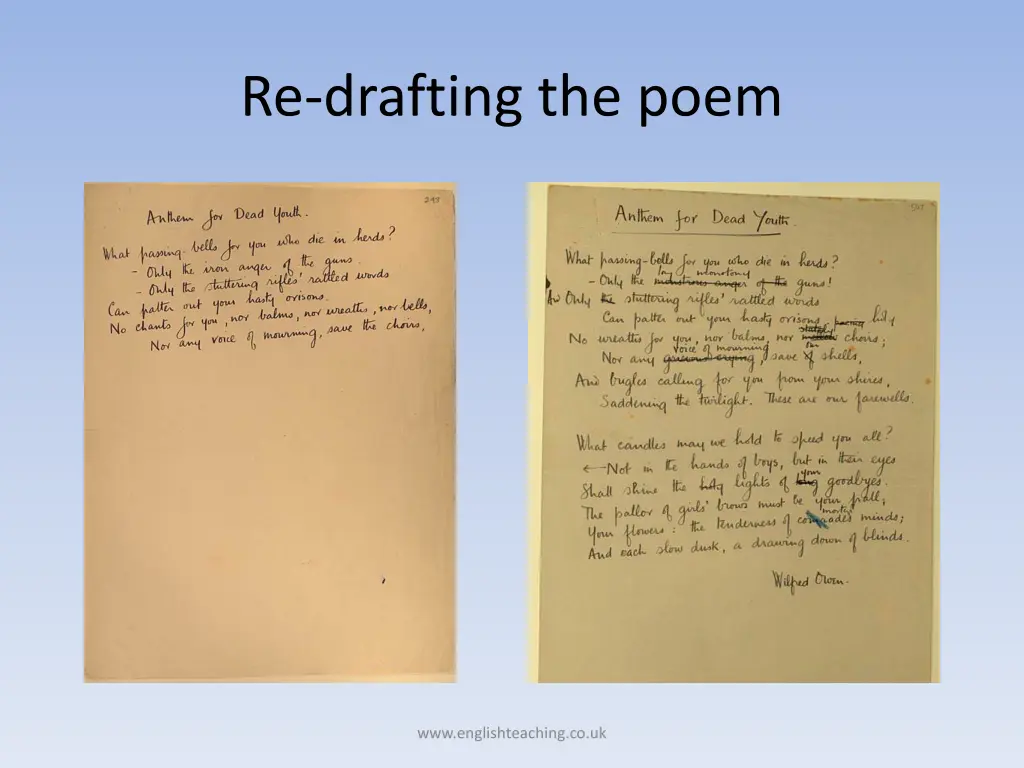 Re-drafting the poem
Anthem for Dead Youth.
What passing-bells for you who die in herds?
- Only the iron anger of the guns.
- Only the stuttering rifles' rattled words
Can patter out your hasty orisons.
No chants for you, nor balms, nor wreaths, nor bells,
Nor any voice of mourning, save the choirs,
Anthem for Dead Youth.
What passing-bells for you who die in herds?
monotony
- Only the monstrous anger of the guns!
And Only the stuttering rifles' rattled words
Can patter out your hasty orisons,
stately
No wreaths for you, nor balms, nor choirs;
voice of mourning our
Nor any, save of shells,
And bugles calling for you from your shires,
Saddening the twilight. These are our farewells.
What candles may we hold to speed you all?
Not in the hands of boys, but in their eyes
your
Shall shine the holy lights of long goodbyes.
The pallor of girls' brows must be your pall;
mortal
Your flowers: the tenderness of comrades' minds;
And each slow dusk, a drawing down of blinds.
Wilfred Owen.
www.englishteaching.co.uk